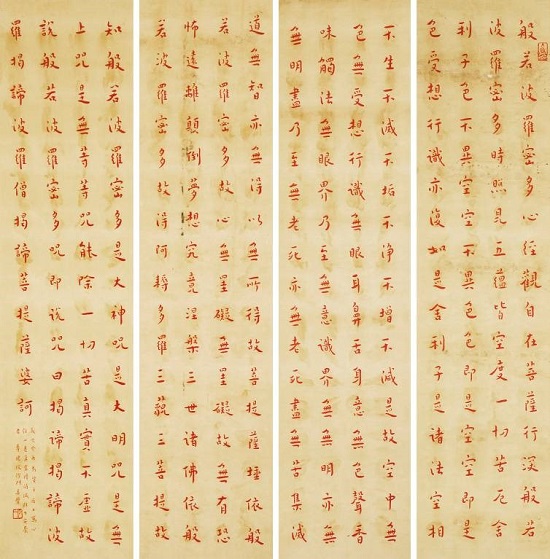 般若波羅密多心經觀自在菩薩行深般若
波羅密多時照見五蘊皆空度一切苦厄舍
利子色不異空空不異色色即是空空即是
色受想行識亦復如是舍利子是諸法空相
不生不滅不垢不淨不增不減是故空中無
色無受想行識無眼耳鼻舌身意無色聲香
味觸法無眼界乃至無意識界無無明亦無
無明盡乃至無老死亦無老死盡無苦集滅
道無智亦無得以無所得故菩提薩埵依般
若波羅密多故心無罣礙無罣礙故無有恐
怖遠離顛倒夢想究竟涅槃三世諸佛依般
若波羅密多故得阿耨多羅三藐三菩提故
知般若波羅密多是大神咒是大明咒是無
上咒是無等等咒能除一切苦真實不虛故
說般若波羅密多咒即說咒曰揭諦揭諦波
羅揭諦波羅僧揭諦菩提薩婆訶